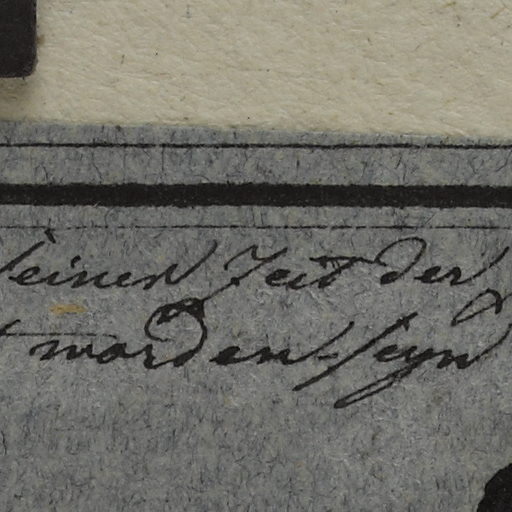 seinen Zeit der
worden seyn